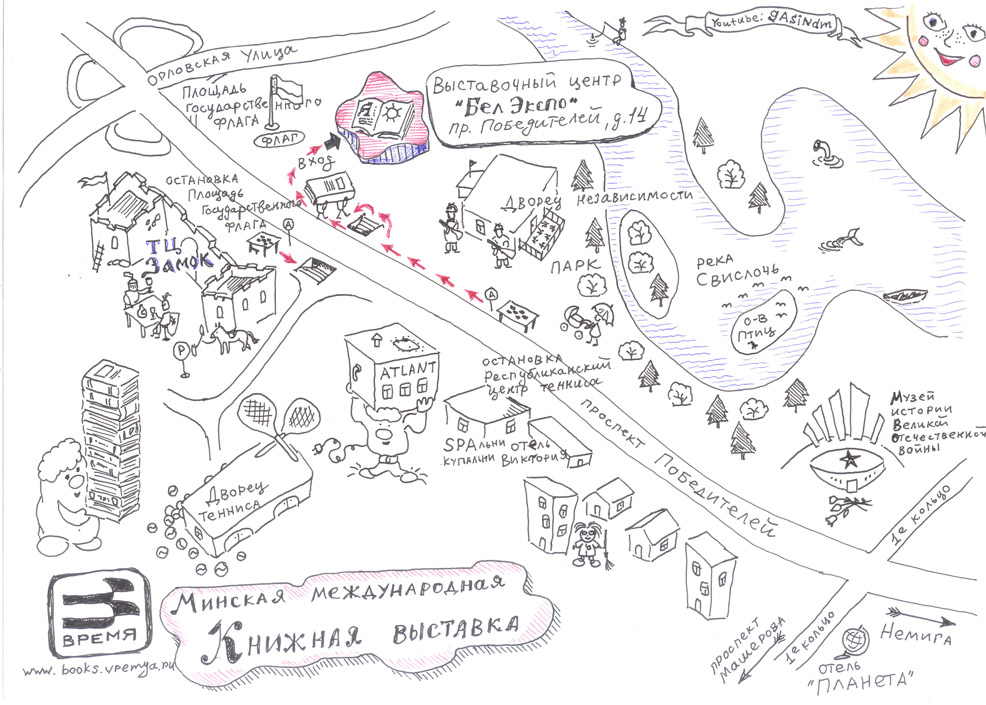 Youtube: gAsiNdm
Орловская улица
Площадь
Государственного
флага
флаг
Выставочный центр
"Бел Экспо"
пр. Победителей, д.14
вход
остановка
Площадь
Государственного
флага
А
ТЦ
Замок
Р
Дворец независимости
ПАРК
А
река
Свислочь
о-в
птиц
остановка
Республиканский
центр тенниса
ATLANT
SPAльни
купальни
отель
Виктория
проспект Победителей
Музей
истории
Великой
Отечественной
войны
1е кольцо
Дворец
тенниса
Минская международная
Книжная выставка
ВРЕМЯ
www.books.vремya.ru
проспект
Машерова
1е кольцо
Немига
отель
"ПЛАНЕТА"